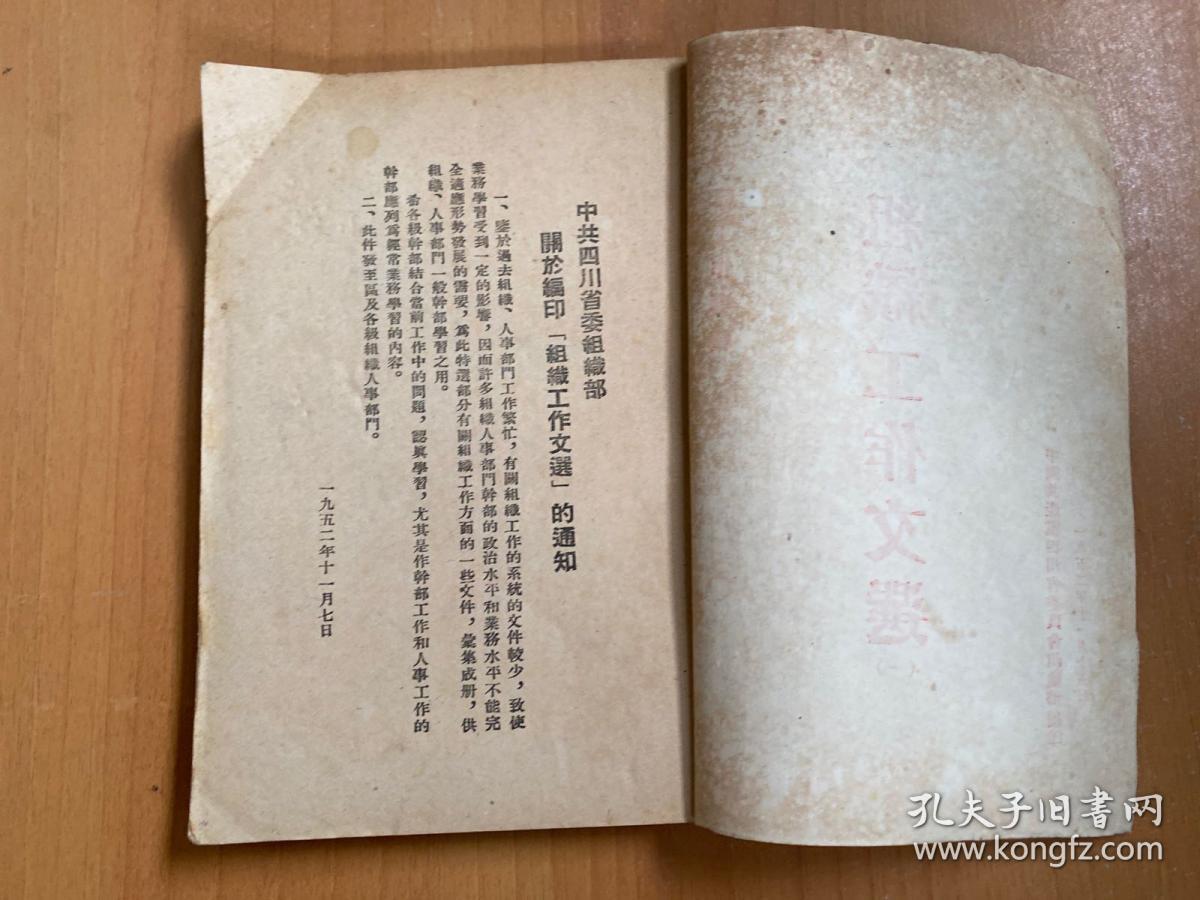 中共四川省委組織部
關於編印「組織工作文選」的通知
一、鑒於過去組織、人事部門工作繁忙，有關組織工作的系統的文件較少，致使
業務學習受到一定的影響，因而許多組織人事部門幹部的政治水平和業務水平不能完
全適應形勢發展的需要，爲此特選部分有關組織工作方面的一些文件，彙集成册，供
組織、人事部門一般幹部學習之用。
希各級幹部結合當前工作中的問題，認眞學習，尤其是作幹部工作和人事工作的
幹部應列爲經常業務學習的內容。
二、此件發至區及各級組織人事部門。
一九五二年十一月七日
工作文選
孔夫子旧书网
www.kongfz.com